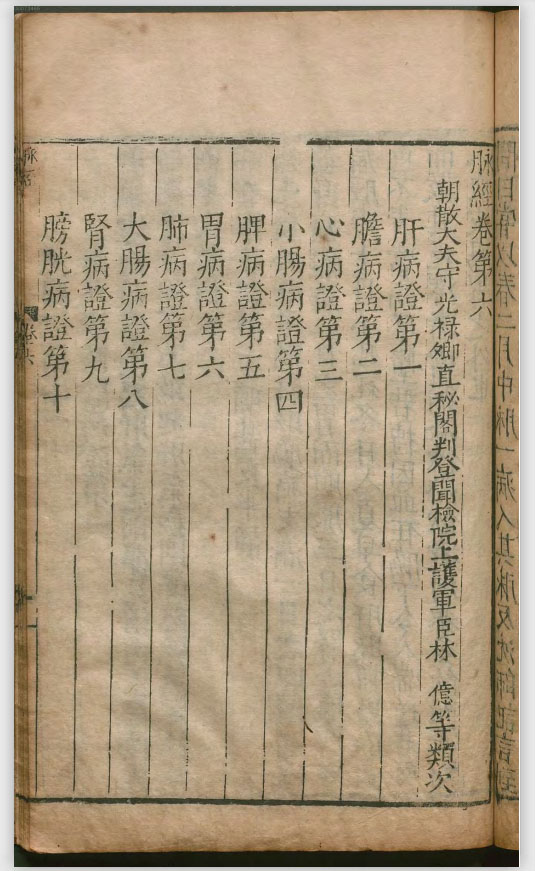 脉經卷第六
朝散大夫守光禄卿直秘閣判登聞檢院上護軍臣林 億等類次
肝病證第一
膽病證第二
心病證第三
小腸病證第四
脾病證第五
胃病證第六
肺病證第七
大腸病證第八
腎病證第九
膀胱病證第十